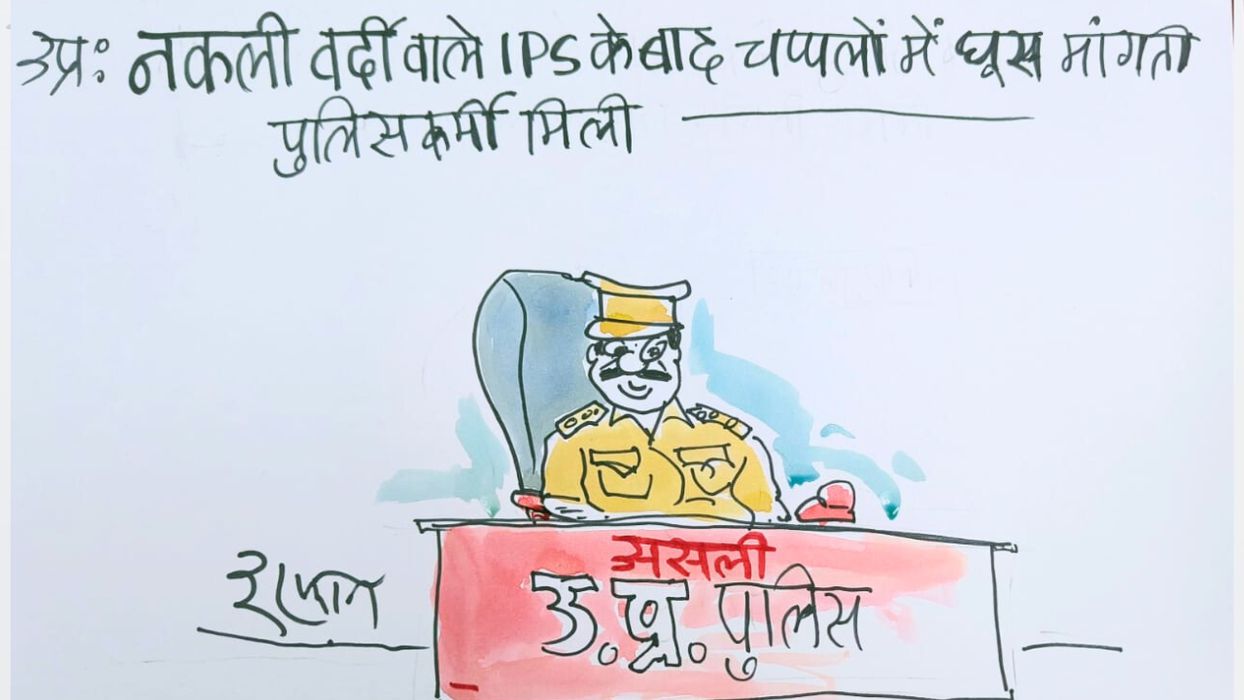 उप्र: नकली वर्दी वाले IPS के बाद चप्पलों में घूस मांगती
पुलिसकर्मी मिली
असली
उ.प्र. पुलिस
इरफान